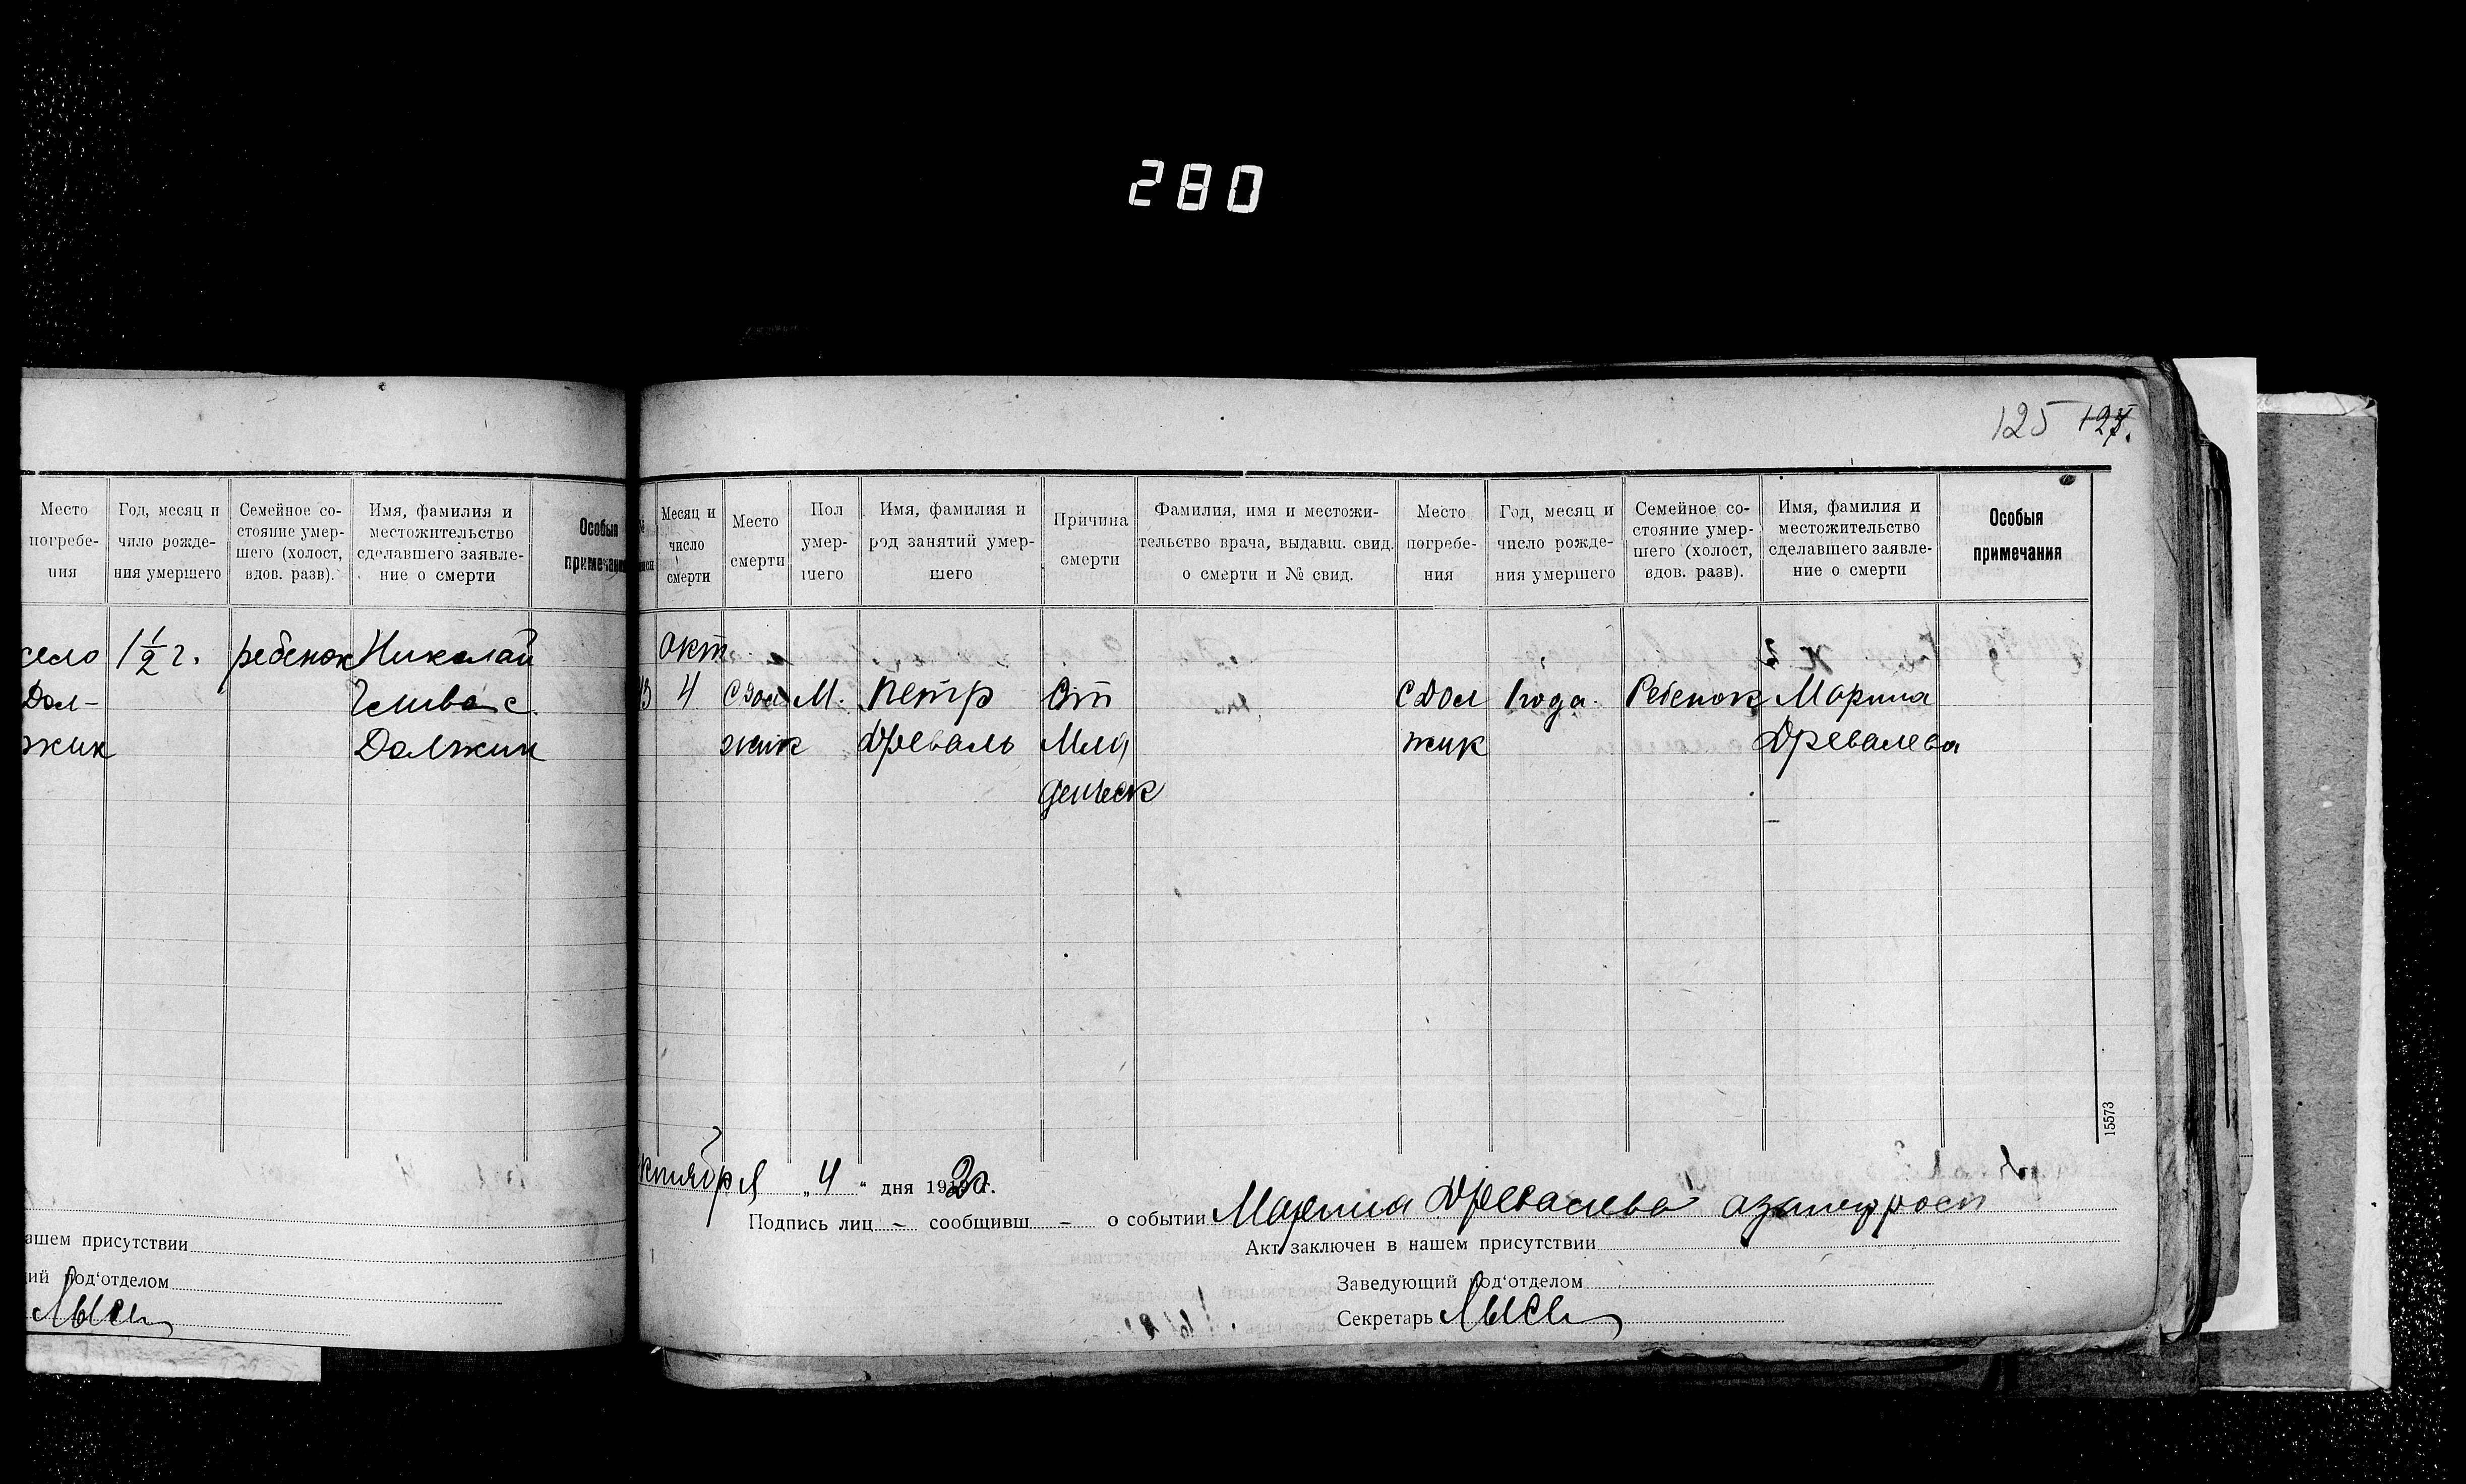 280
125 127.
Место погребе- ния
Год, месяц и число рожде- ния умершего
Семейное со- стояние умер- шего (холост, вдов. разв).
Имя, фамилия и местожительство сделавшего заявле- ние о смерти
Особыя примечания
село 1 1/2 г. ребенок Николай
Дол-
жик Должик
Месяц и число смерти
Место смерти
Пол умер- шего
Имя, фамилия и род занятий умер- шего
Причина смерти
Фамилия, имя и местожи- тельство врача, выдавш. свид. о смерти и № свид.
Место погребе- ния
Год, месяц и число рожде- ния умершего
Семейное со- стояние умер- шего (холост, вдов. разв).
Имя, фамилия и местожительство сделавшего заявле- ние о смерти
Особыя примечания
окт
13 4 с Дол М. Петр От с Дол 1 года Ребенок Марина
жик Древаль Мла жик Древалева
денческ
15573
ктября „4“ дня 1920 г.
Подпись лиц – сообщивш – о событии Марина Древалева
Акт заключен в нашем присутствии
Заведующий под‘отделом
Секретарь
ашем присутствии
ий под‘отделом